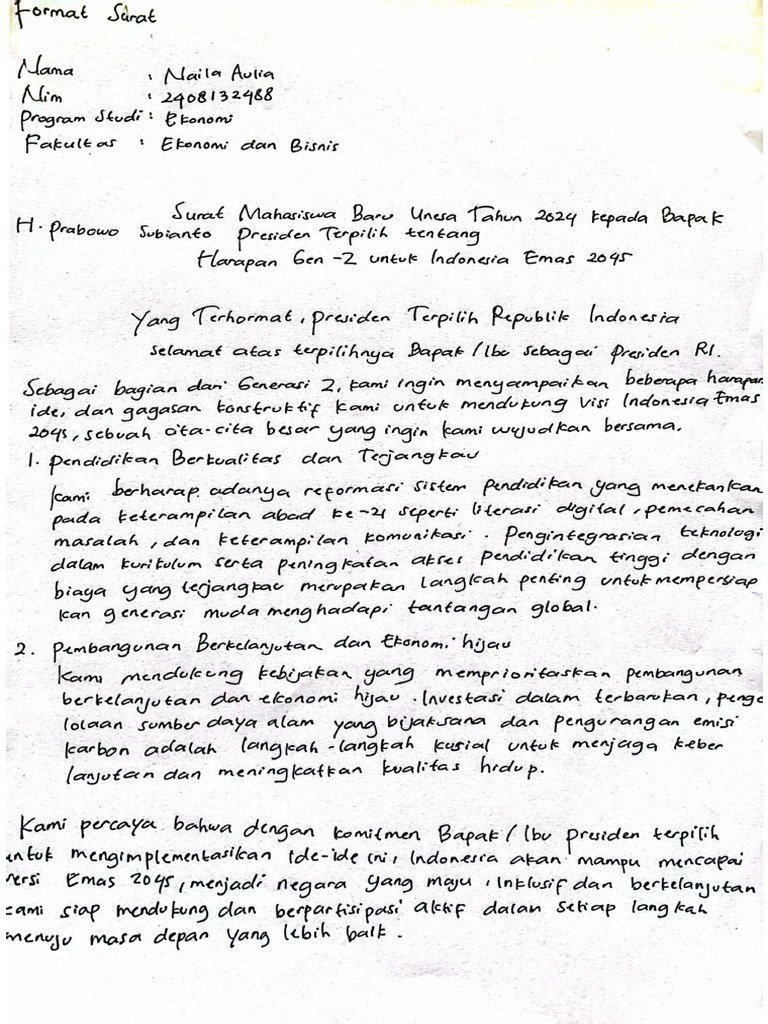 Format Surat
Nama : Naila Aulia
Nim : 2408132488
Program Studi : Ekonomi
Fakultas : Ekonomi dan Bisnis
Surat Mahasiswa Baru Unesa Tahun 2024 kepada Bapak
H. Prabowo Subianto Presiden Terpilih tentang
Harapan Gen-Z untuk Indonesia Emas 2045
Yang Terhormat, Presiden Terpilih Republik Indonesia
selamat atas terpilihnya Bapak/Ibu sebagai Presiden RI.
Sebagai bagian dari Generasi Z, kami ingin menyampaikan beberapa harapan
ide, dan gagasan konstruktif kami untuk mendukung visi Indonesia Emas
2045, sebuah cita-cita besar yang ingin kami wujudkan bersama.
1. Pendidikan Berkualitas dan Terjangkau
Kami berharap adanya reformasi sistem pendidikan yang menekankan
pada keterampilan abad ke-21 seperti literasi digital, pemecahan
masalah, dan keterampilan komunikasi. Pengintegrasian teknologi
dalam kurikulum serta peningkatan akses pendidikan tinggi dengan
biaya yang terjangkau merupakan langkah penting untuk mempersiap
kan generasi muda menghadapi tantangan global.
2. Pembangunan Berkelanjutan dan Ekonomi hijau
Kami mendukung kebijakan yang memprioritaskan pembangunan
berkelanjutan dan ekonomi hijau. Investasi dalam terbarukan, penge
lolaan sumber daya alam yang bijaksana dan pengurangan emisi
karbon adalah langkah-langkah kusial untuk menjaga keber
lanjutan dan meningkatkan kualitas hidup.
Kami percaya bahwa dengan komitmen Bapak/Ibu presiden terpilih
untuk mengimplementasikan ide-ide ini, Indonesia akan mampu mencapai
versi Emas 2045, menjadi negara yang maju, Inklusif dan berkelanjutan
kami siap mendukung dan berpartisipasi aktif dalan setiap langkah
menuju masa depan yang lebih baik.